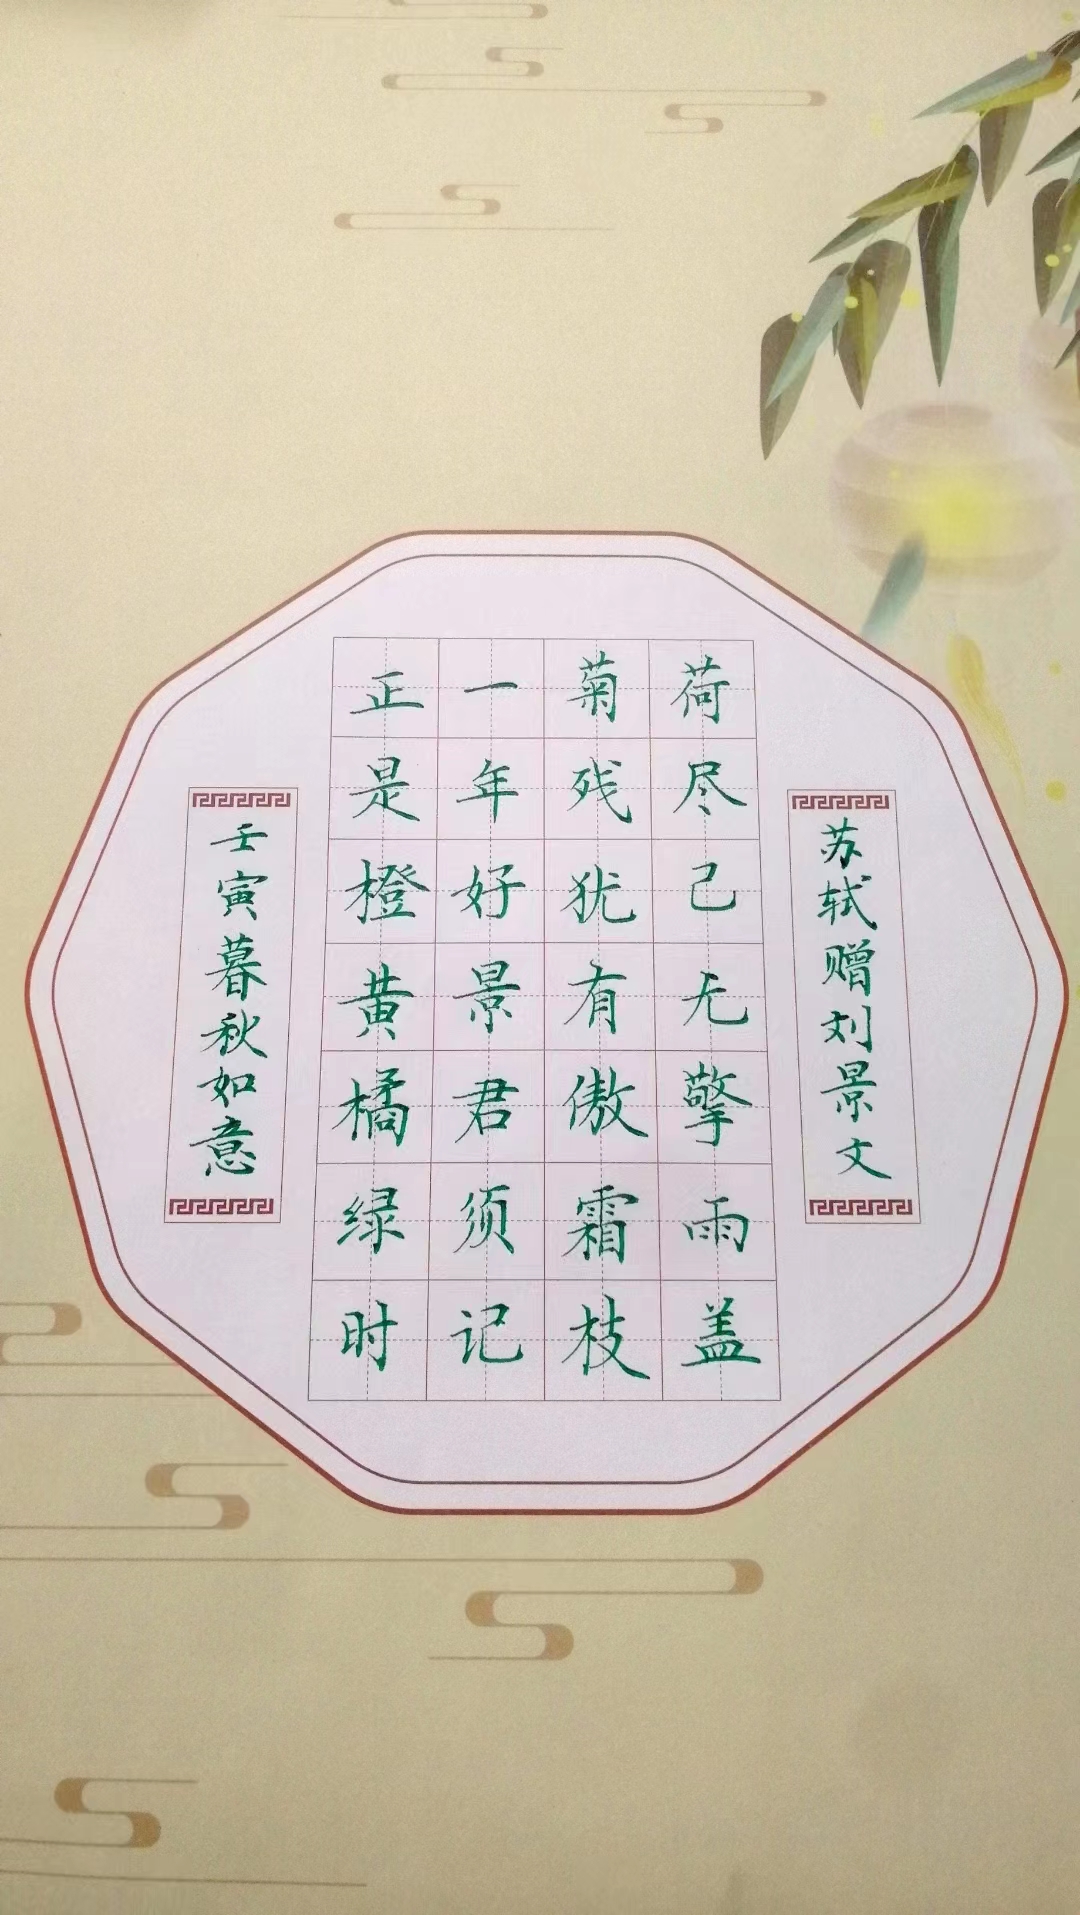 苏轼赠刘景文
荷尽已无擎雨盖
菊残犹有傲霜枝
一年好景君须记
正是橙黄橘绿时
壬寅暮秋如意